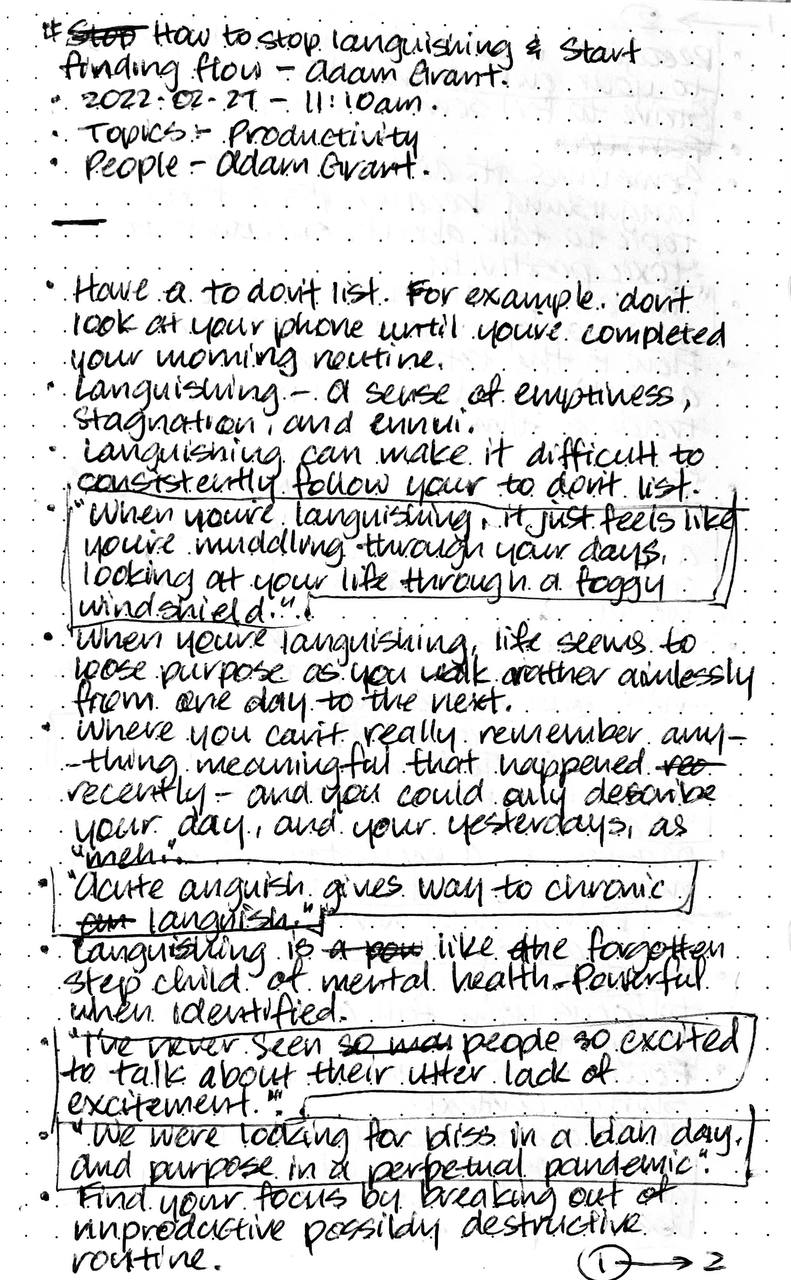 # Stop How to stop languishing & Start
finding flow - Adam Grant.
• 2022-02-27 - 11:10am.
• Topics:- Productivity
• People - Adam Grant.
—
• Have a to don't list. For example. don't
look at your phone until you're completed
your morning routine.
• Languishing - a sense of emptiness,
stagnation, and ennui.
• Languishing can make it difficult to
consistently follow your to don't list.
• "When you're languishing, it just feels like
you're muddling through your days,
looking at your life through a foggy
windshield."
• When you're languishing, life seems to
loose purpose as you walk rather aimlessly
from one day to the next.
• Where you can't really remember any-
-thing meaningful that happened rec
recently - and you could only describe
your day, and your yesterdays, as
"meh."
• "Acute anguish gives way to chronic
languish."
• Languishing is a pow like the forgotten
step child of mental health. Powerful
when identified.
• "I've never seen so man people so excited
to talk about their utter lack of
excitement."
• "We were looking for bliss in a blah day,
and purpose in a perpetual pandemic".
• Find your focus by breaking out of
unproductive possibly destructive
routine.
1 → 2